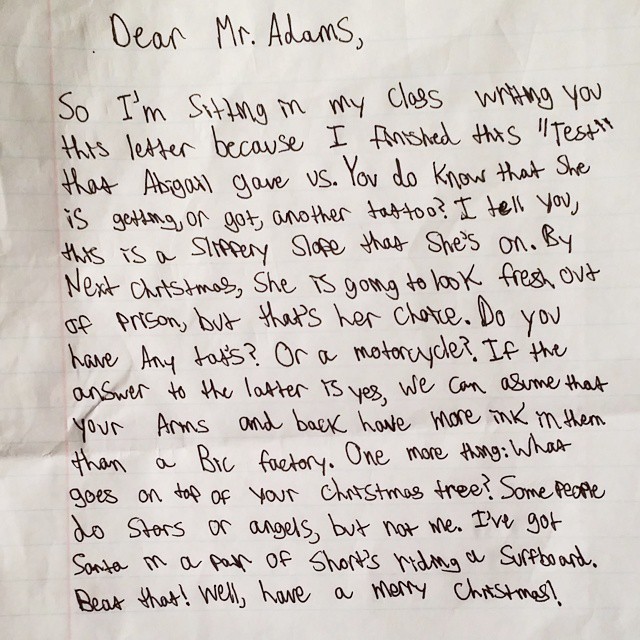 Dear Mr. Adams,
So I'm sitting in my class writing you
this letter because I finished this "Test"
that Abigail gave us. You do know that she
is getting, or got, another tattoo? I tell you,
this is a slippery slope that she's on. By
Next christmas, she is going to look fresh out
of prison, but that's her choice. Do you
have Any tat's? Or a motorcycle? If the
answer to the latter is yes, we can asume that
your Arms and back have more ink in them
than a Bic factory. One more thing: What
goes on top of your christmas tree? Some people
do stars or angels, but not me. I've got
Santa in a pair of short's riding a surfboard.
Beat that! Well, have a merry christmas!